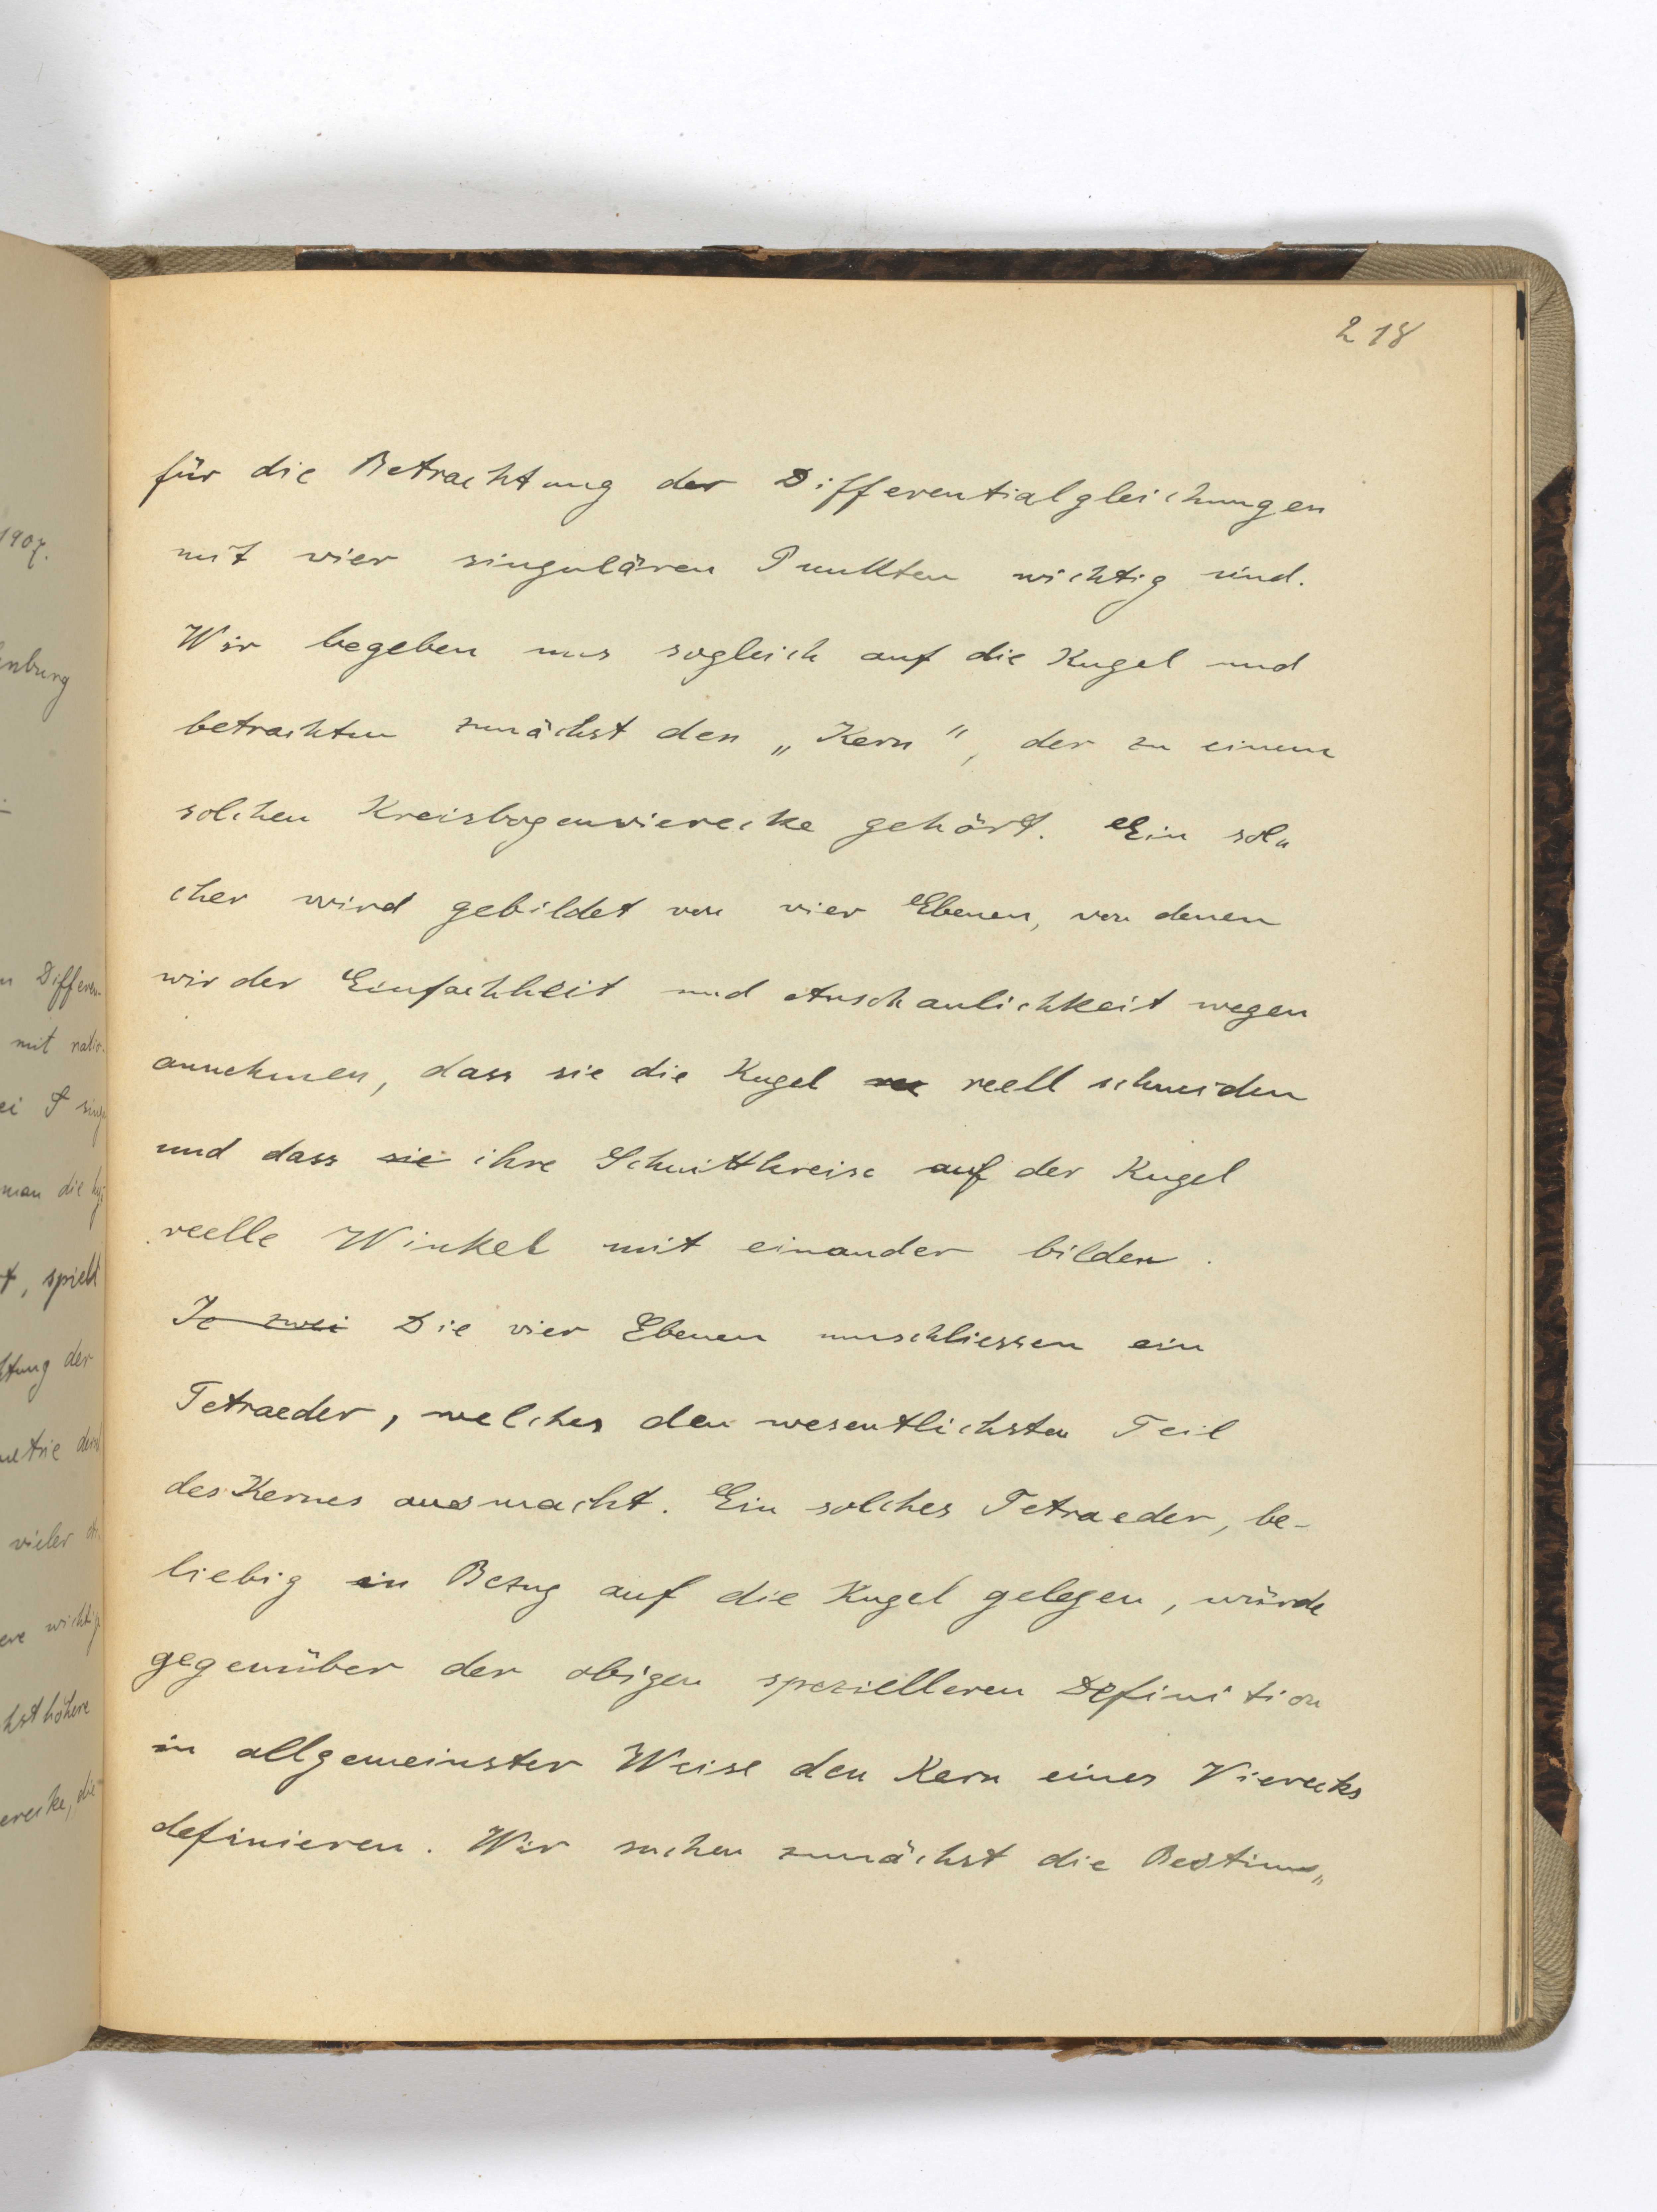 218
für die Betrachtung der Differentialgleichungen
mit vier singulären Punkten wichtig sind.
Wir begeben uns sogleich auf die Kugel und
betrachten zunächst den „Kern“, der zu einem
solchen Kreisbogenvierecke gehört. Ein sol„
cher wird gebildet von vier Ebenen, von denen
wir der Einfachheit und Anschaulichkeit wegen
annehmen, dass sie die Kugel reell schneiden
und dass sie ihre Schnittkreise auf der Kugel
reelle Winkel mit einander bilden.
Je zwei Die vier Ebenen umschliessen ein
Tetraeder, welches den wesentlichsten Teil
des Kernes ausmacht. Ein solches Tetraeder, be-
liebig in Bezug auf die Kugel gelegen, würde
gegenüber der obigen spezielleren Definition
in allgemeinster Weise den Kern eines Vierecks
definieren. Wir suchen zunächst die Bestim„
1907.
enburg
n Differen-
mit ratio-
man die
t, spielt
htung der
vieler
ere wichtig
hst höhere
erecke, die